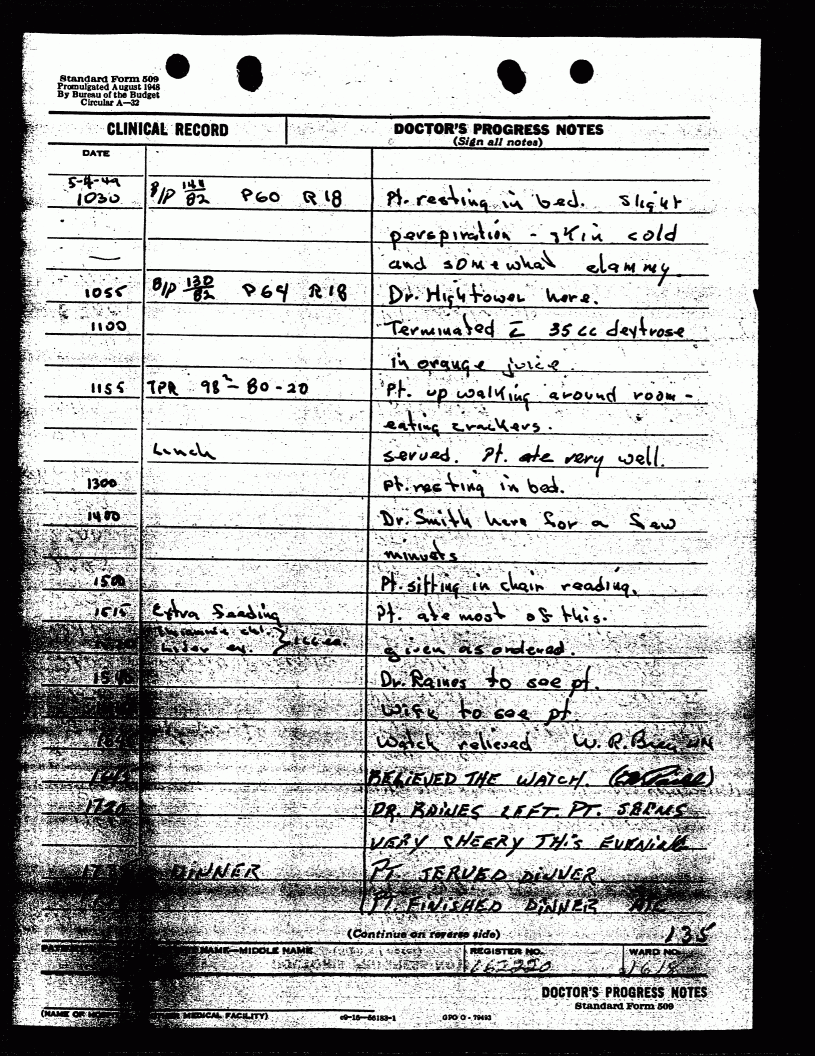 Standard Form 509
Promulgated August 1948
By Bureau of the Budget
Circular A—32
CLINICAL RECORD
DOCTOR'S PROGRESS NOTES
(Sign all notes)
DATE
5-4-49
1030 B/P 144/82 P60 R18 Pt. resting in bed. Slight
perspiration - skin cold
and somewhat clammy.
1055 B/P 130/82 P64 R18 Dr. Hightower here.
1100 Terminated c̄ 35cc deytrose
in orange juice.
1155 TPR 98²- 80-20 Pt. up walking around room -
eating crackers.
Lunch served. Pt. ate very well.
1300 Pt. resting in bed.
1400 Dr. Smith here for a few
minuets
1500 Pt. sitting in chair reading.
1515 Extra feeding Pt. ate most of this.
Liver ex. given as ordered.
Dr. Raines to see pt.
Wife to see pt.
Watch relieved W.R.
1645 RELIEVED THE WATCH.
1720 DR. RAINES LEFT. PT. SEEMS
VERY CHEERY THIS EVENING
DINNER PT. SERVED DINNER
PT. FINISHED DINNER ATE
(Continue on reverse side)
135
NAME—MIDDLE NAME
REGISTER NO.
WARD NO.
DOCTOR'S PROGRESS NOTES
Standard Form 509
MEDICAL FACILITY)
c9—16—56183-1
GPO O - 79493